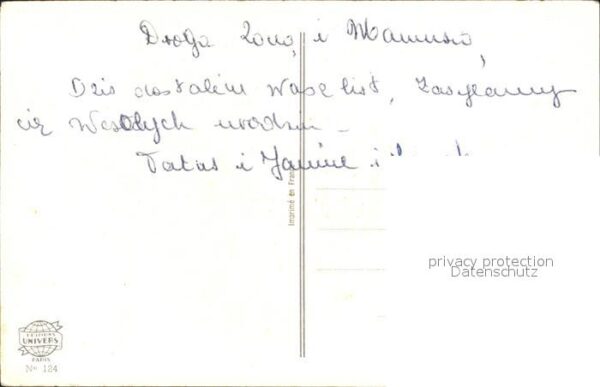 Droga Zono, i Mamusio,
Dziś dostałem Wasz list, Zasyłamy
Wesołych urodzin –
Tatas i Janine i
Imprimé en Fran
privacy protection
Datenschutz
EDITIONS
UNIVERS
PARIS
Nº 184